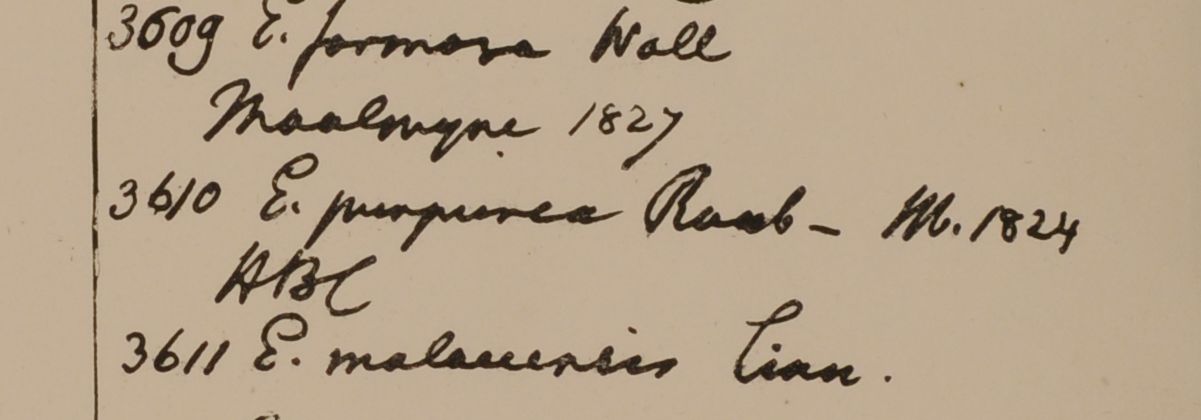 3609 E. formosa Wall
Moalmyne 1827
3610 E. purpurea Roxb - M. 1824
HBC
3611 E. malaccensis Linn.